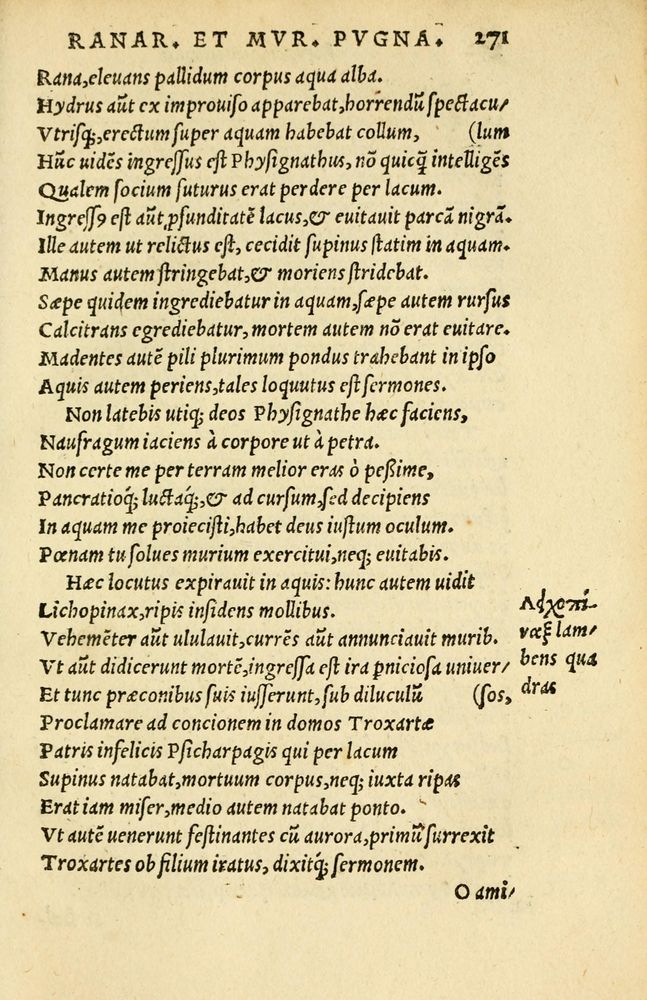 RANAR. ET MVR. PVGNA. 271
Rana,eleuans pallidum corpus aqua alba.
Hydrus aūt ex improuiso apparebat,horrendū spectacu/
Vtrisq;,erectum super aquam habebat collum, (lum
Hūc uidēs ingressus est Physignathus, nō quicq̃ intelligēs
Qualem socium futurus erat perdere per lacum.
Ingressꝰ est aūt ꝓfunditatē lacus,& euitauit parcā nigrā.
Ille autem ut relictus est, cecidit supinus statim in aquam.
Manus autem stringebat,& moriens stridebat.
Sæpe quidem ingrediebatur in aquam,sæpe autem rursus
Calcitrans egrediebatur, mortem autem nō erat euitare.
Madentes autē pili plurimum pondus trahebant in ipso
Aquis autem periens,tales loquutus est sermones.
Non latebis utiq; deos Physignathe hæc faciens,
Naufragum iaciens à corpore ut à petra.
Non certe me per terram melior eras ò peßime,
Pancratioq́; luctaq́;,& ad cursum,sed decipiens
In aquam me proiecisti,habet deus iustum oculum.
Pœnam tu solues murium exercitui,neq; euitabis.
Hæc locutus expirauit in aquis: hunc autem uidit
Lichopinax,ripis insidens mollibus.
Vehemēter aūt ululauit,currēs aūt annunciauit murib.
Vt aūt didicerunt mortē,ingressa est ira ꝑniciosa uniuer/
Et tunc præconibus suis iusserunt,sub diluculū (sos,
Proclamare ad concionem in domos Troxartæ
Patris infelicis Psicharpagis qui per lacum
Supinus natabat,mortuum corpus,neq; iuxta ripas
Erat iam miser,medio autem natabat ponto.
Vt autē uenerunt festinantes cū aurora,primū surrexit
Troxartes ob filium iratus, dixitq́; sermonem.
O ami/
lam/
bens qua
dras